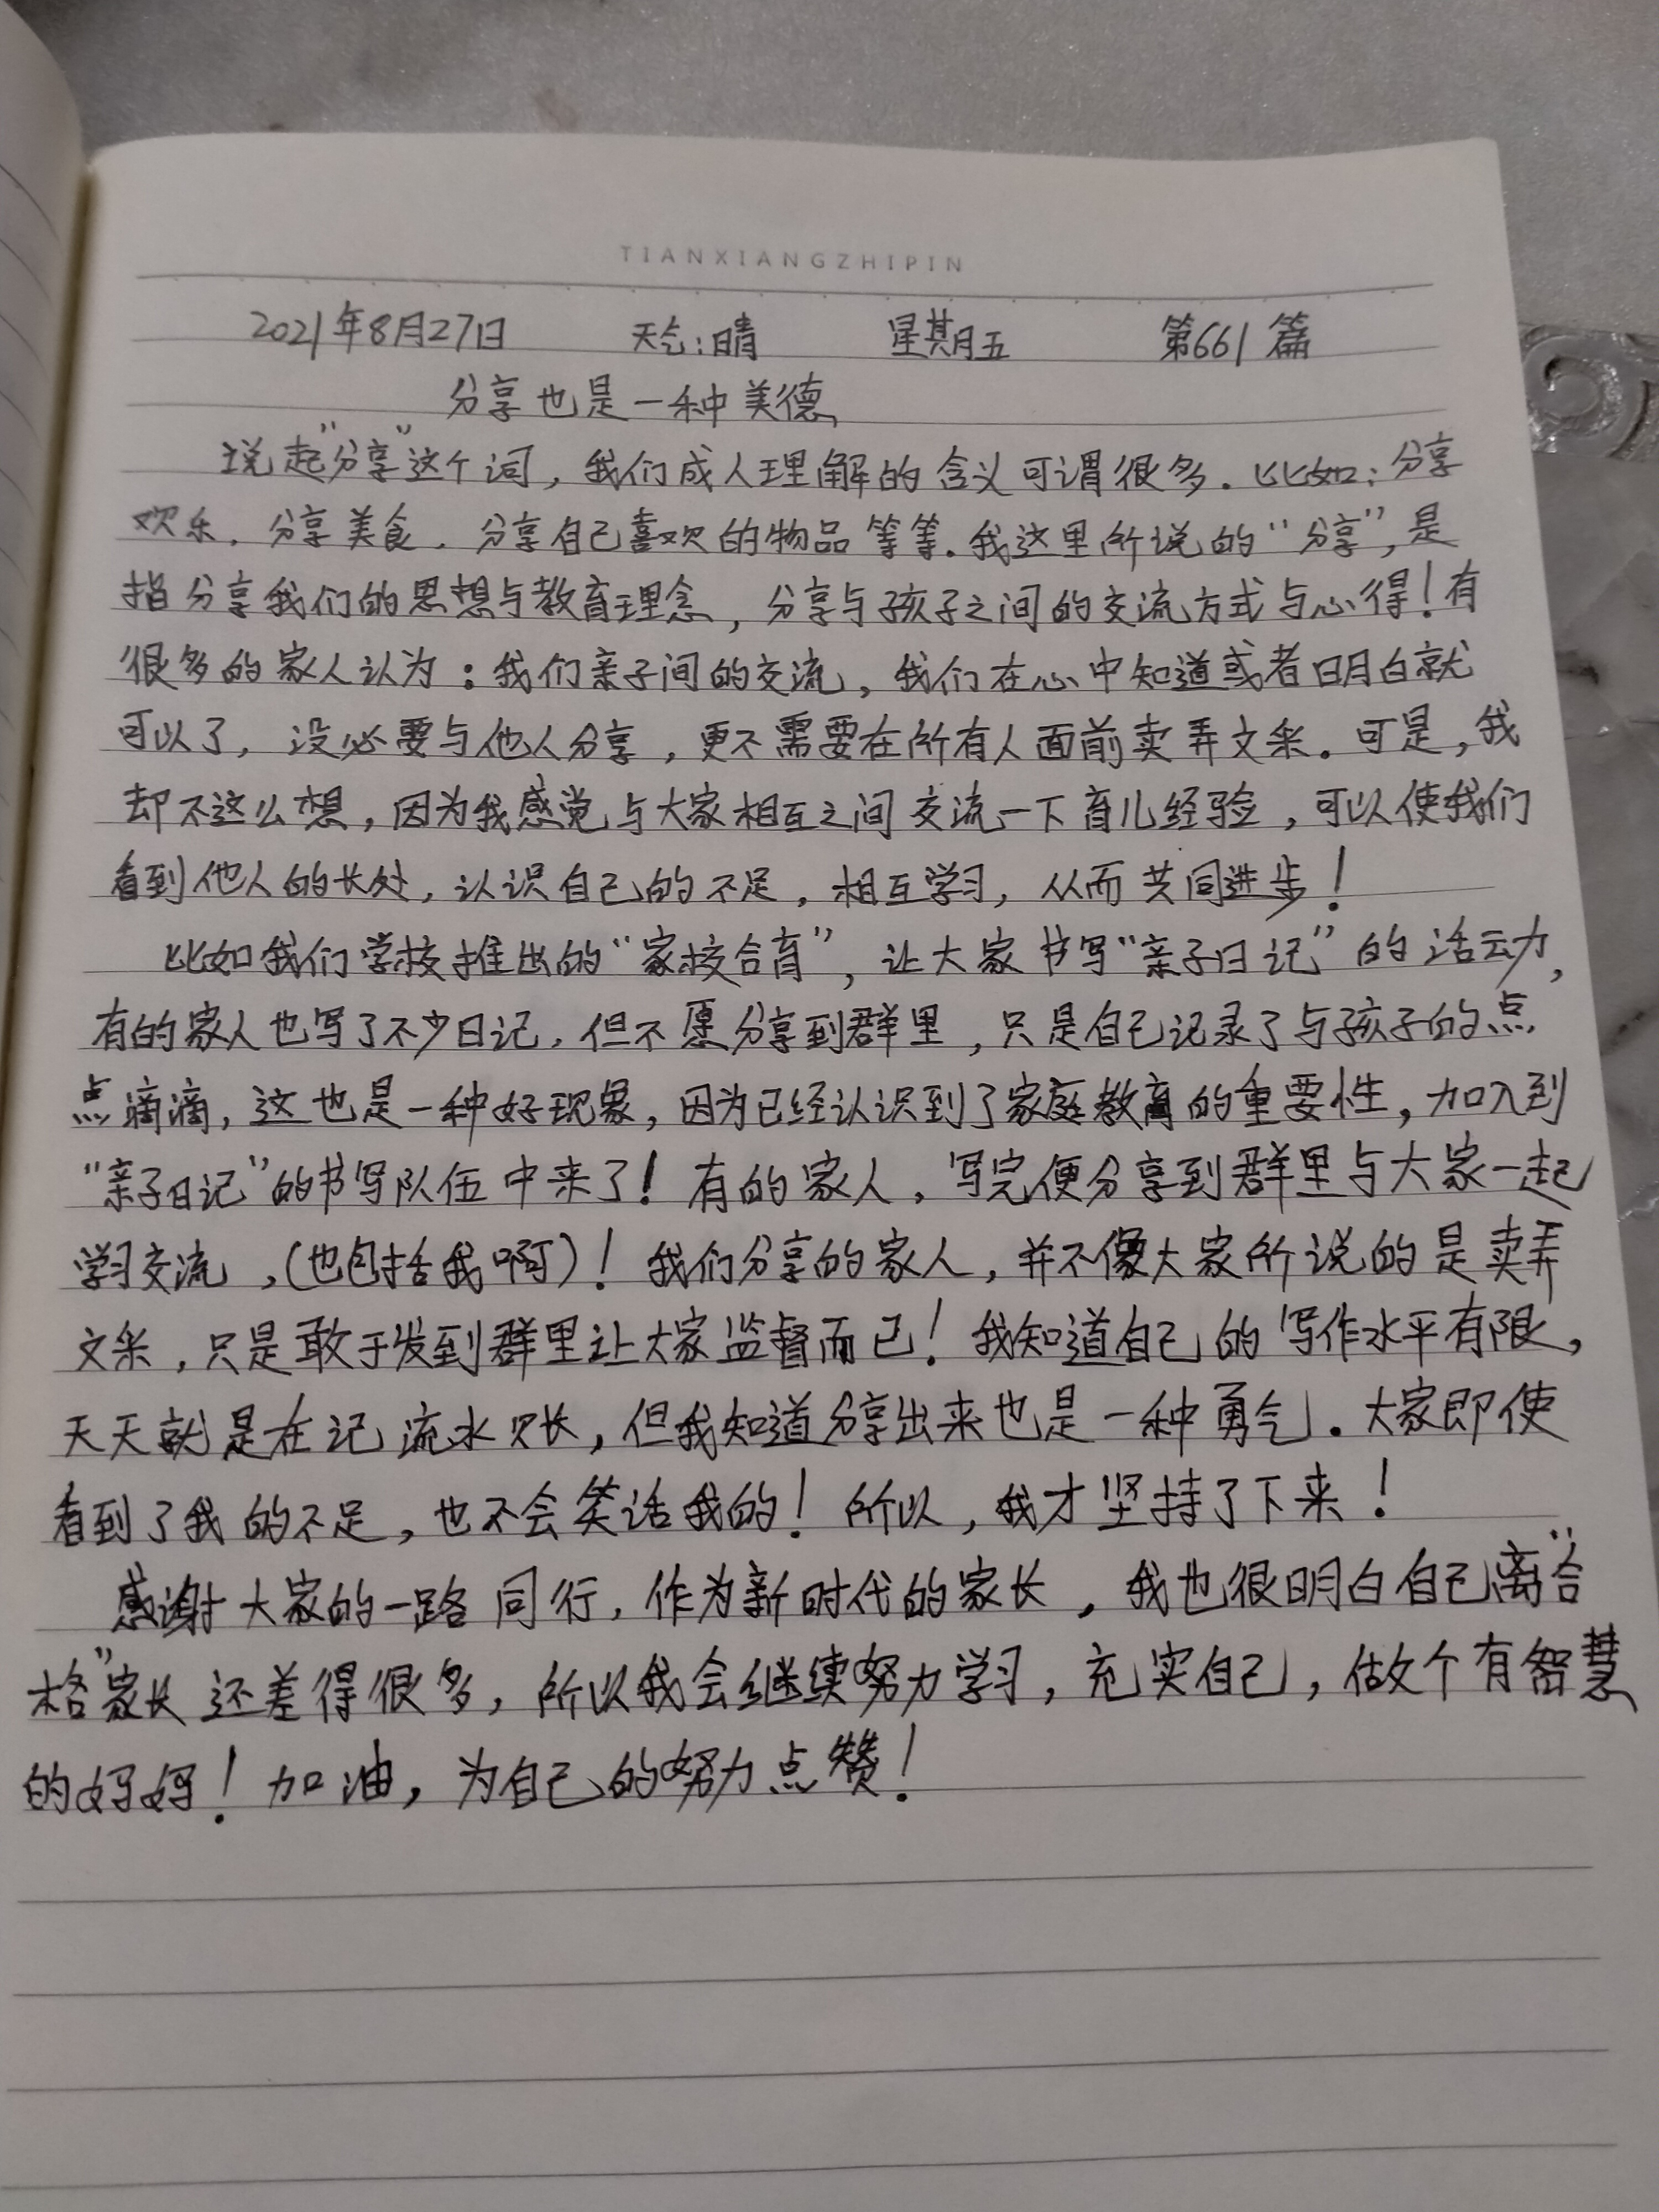 TIANXIANGZHIPIN
2021年8月27日 天气:晴 星期五 第661篇
分享也是一种美德
说起"分享"这个词,我们成人理解的含义可谓很多.比如:分享
欢乐.分享美食.分享自己喜欢的物品等等.我这里所说的"分享",是
指分享我们的思想与教育理念,分享与孩子之间的交流方式与心得!有
很多的家人认为:我们亲子间的交流,我们在心中知道或者明白就
可以了,没必要与他人分享,更不需要在所有人面前卖弄文采.可是,我
却不这么想,因为我感觉与大家相互之间交流一下育儿经验,可以使我们
看到他人的长处,认识自己的不足,相互学习,从而共同进步!
比如我们学校推出的"家校合育",让大家书写"亲子日记"的活动,
有的家人也写了不少日记,但不愿分享到群里,只是自己记录了与孩子的点
点滴滴,这也是一种好现象,因为已经认识到了家庭教育的重要性,加入到
"亲子日记"的书写队伍中来了!有的家人,写完便分享到群里与大家一起
学习交流,(也包括我啊)!我们分享的家人,并不像大家所说的是卖弄
文采,只是敢于发到群里让大家监督而已!我知道自己的写作水平有限,
天天就是在记流水账,但我知道分享出来也是一种勇气.大家即使
看到了我的不足,也不会笑话我的!所以,我才坚持了下来!
感谢大家的一路同行,作为新时代的家长,我也很明白自己离"合
格"家长还差得很多,所以我会继续努力学习,充实自己,做个有智慧
的妈妈!加油,为自己的努力点赞!